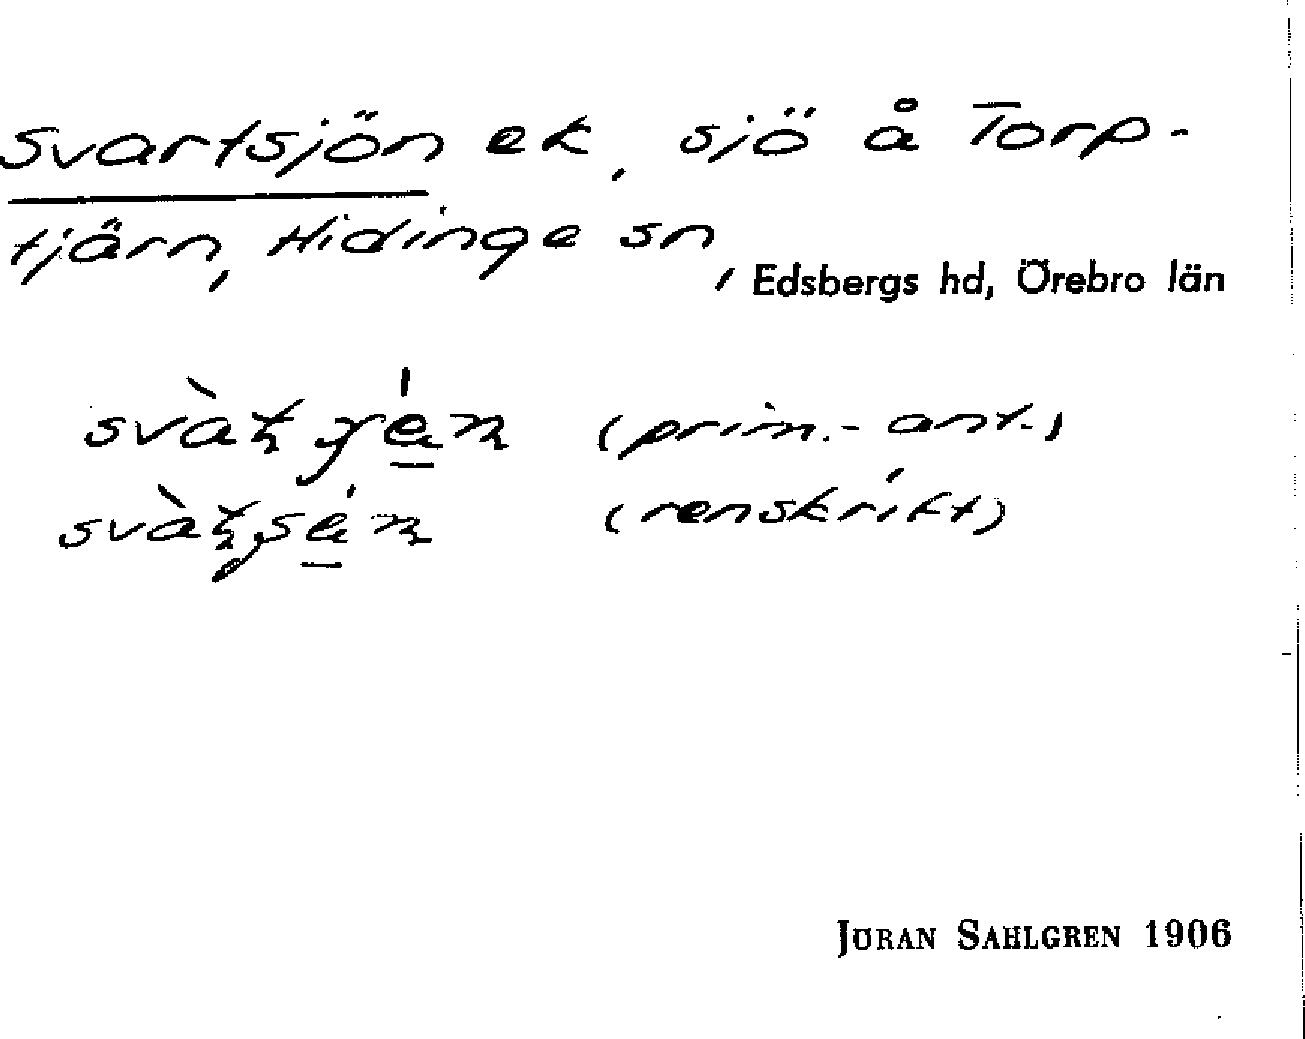 Svartsjön ek, sjö å Torp-
tjärn, Hidinge sn, Edsbergs hd, Örebro län
(prim.- ant.)
(renskrift)
JÖRAN SAHLGREN 1906